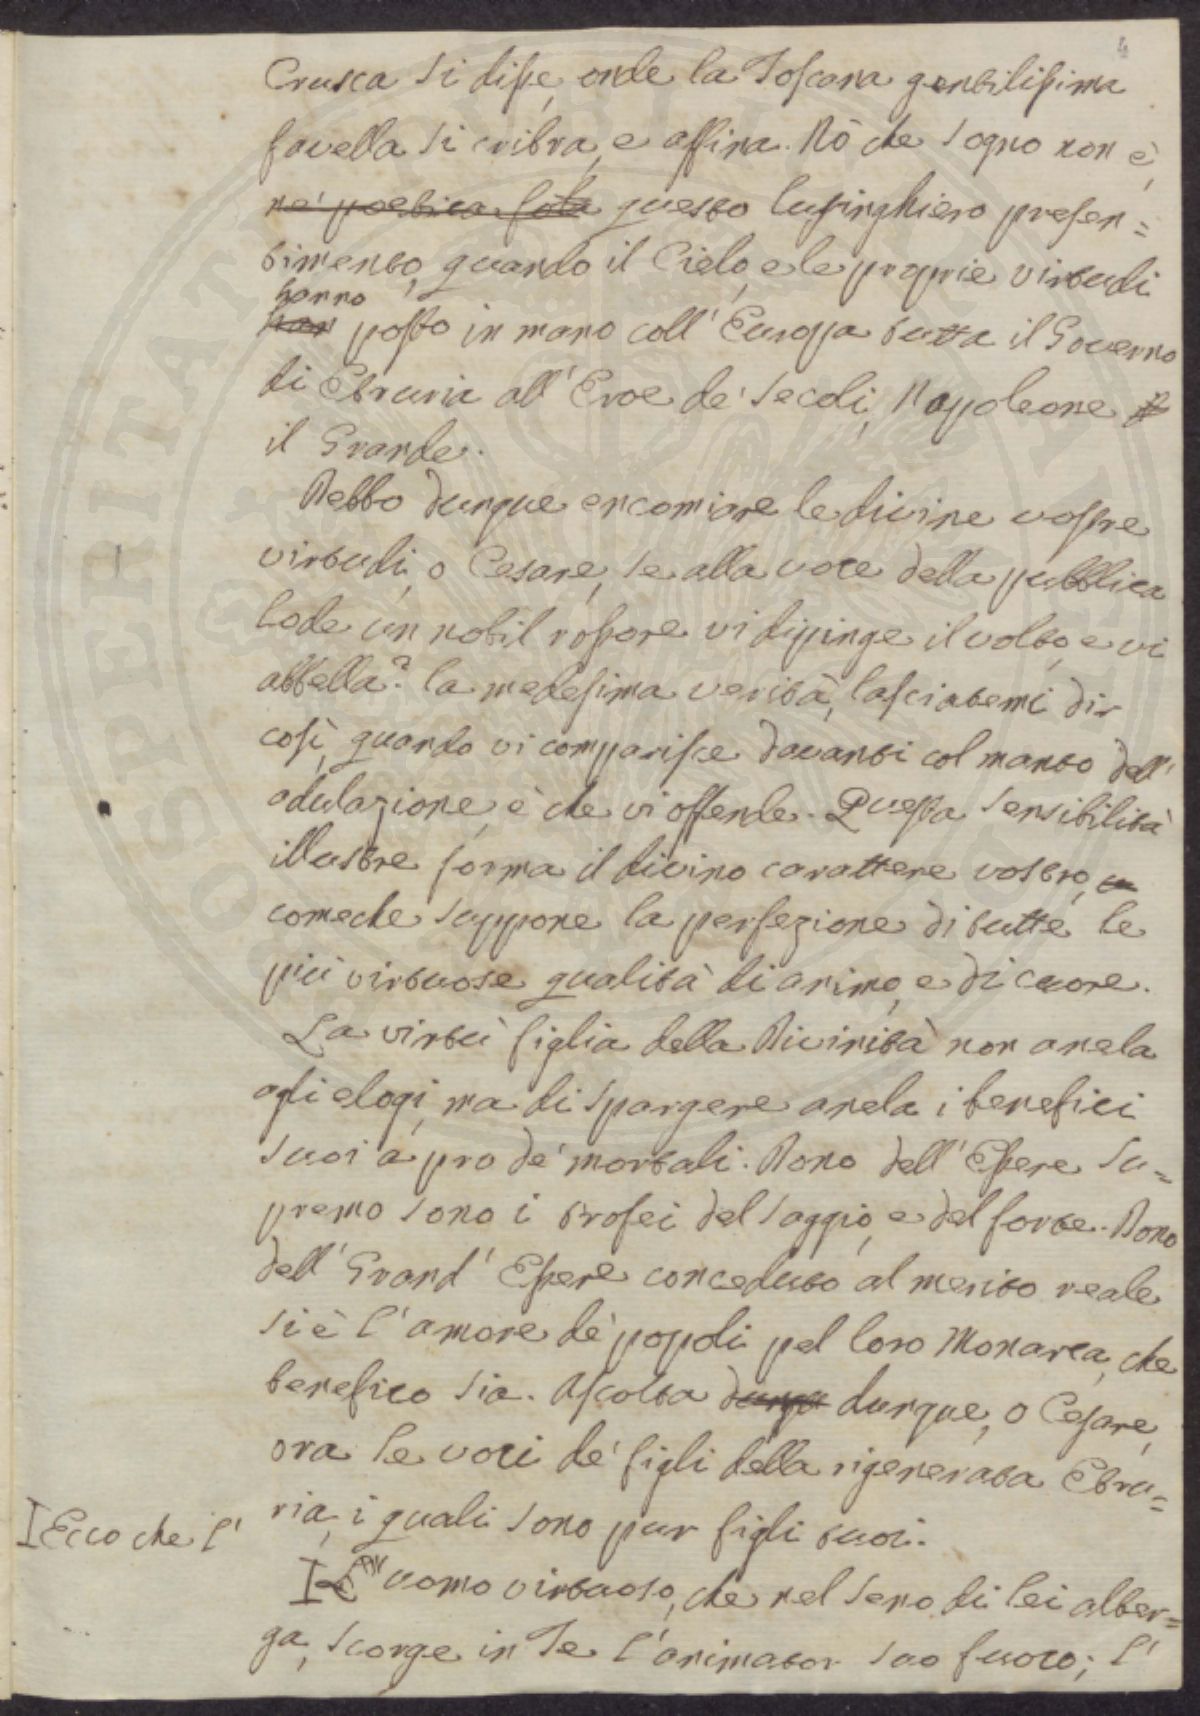 4
Crusca si disse, onde la Toscana gentilissima
favella si cribra, e affina. Nò che sogno non è,
nè poetica fola questo lusinghiero presen=
timento, quando il Cielo, e le proprie virtudi
hanno
han posto in mano coll' Europa tutta il Governo
di Etruria all' Eroe de' secoli, Napoleone
il Grande.
Debbo dunque encomiare le divine vostre
virtudi, o Cesare, se alla voce della pubblica
lode un nobil rossore vi dipinge il volto, e vi
abbella? la medesima verità, lasciatemi dir
così, quando vi comparisce davanti col manto dell'
adulazione, è che vi offende. Questa sensibilità
illustre forma il divino carattere vostro,
comeche suppone la perfezione di tutte le
più virtuose qualità di animo, e di cuore.
La virtù figlia della Divinità non anela
agli elogi, ma di spargere anela i benefici
suoi a pro de' mortali. Dono dell' Essere Su=
premo sono i trofei del saggio, e del forte. Dono
dell' Grand' Essere conceduto al merito reale
si è l' amore de' popoli pel loro Monarca, che
benefico sia. Ascolta dunqu dunque, o Cesare,
ora le voci de' figli della rigenerata Etru=
ria, i quali sono pur figli tuoi.
I Ecco che l'
I L' uomo virtuoso, che nel seno di lei alber=
ga, scorge in Te l' animator suo fuoco; l'